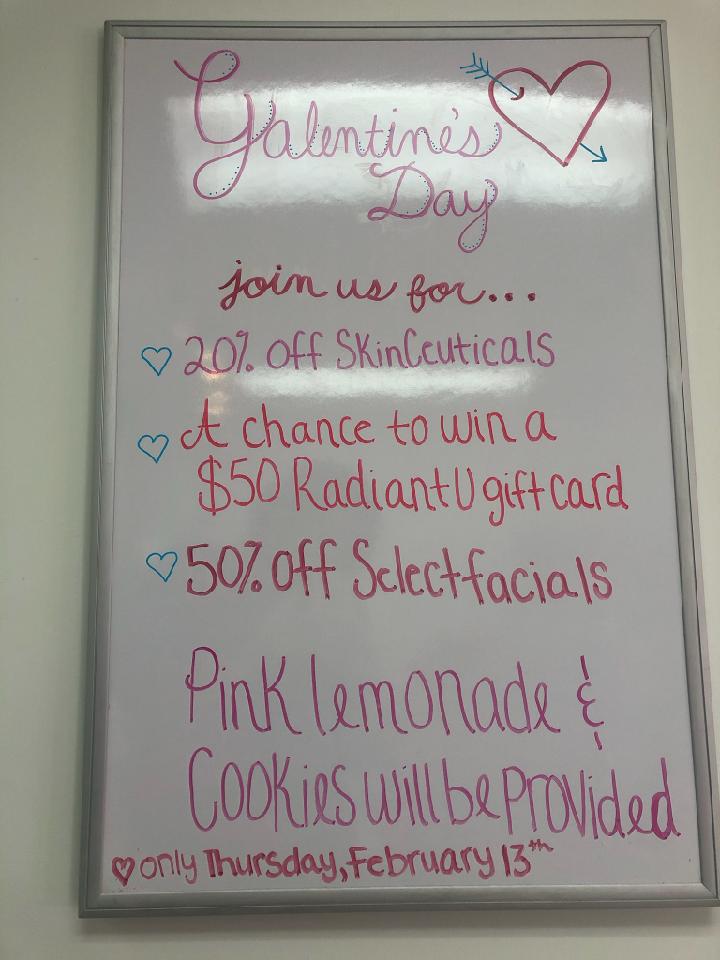 Galentine's
Day
join us for...
20% off SkinCeuticals
A chance to win a
$50 Radiant U gift card
50% off Select facials
Pink lemonade &
Cookies will be provided
only Thursday, February 13th